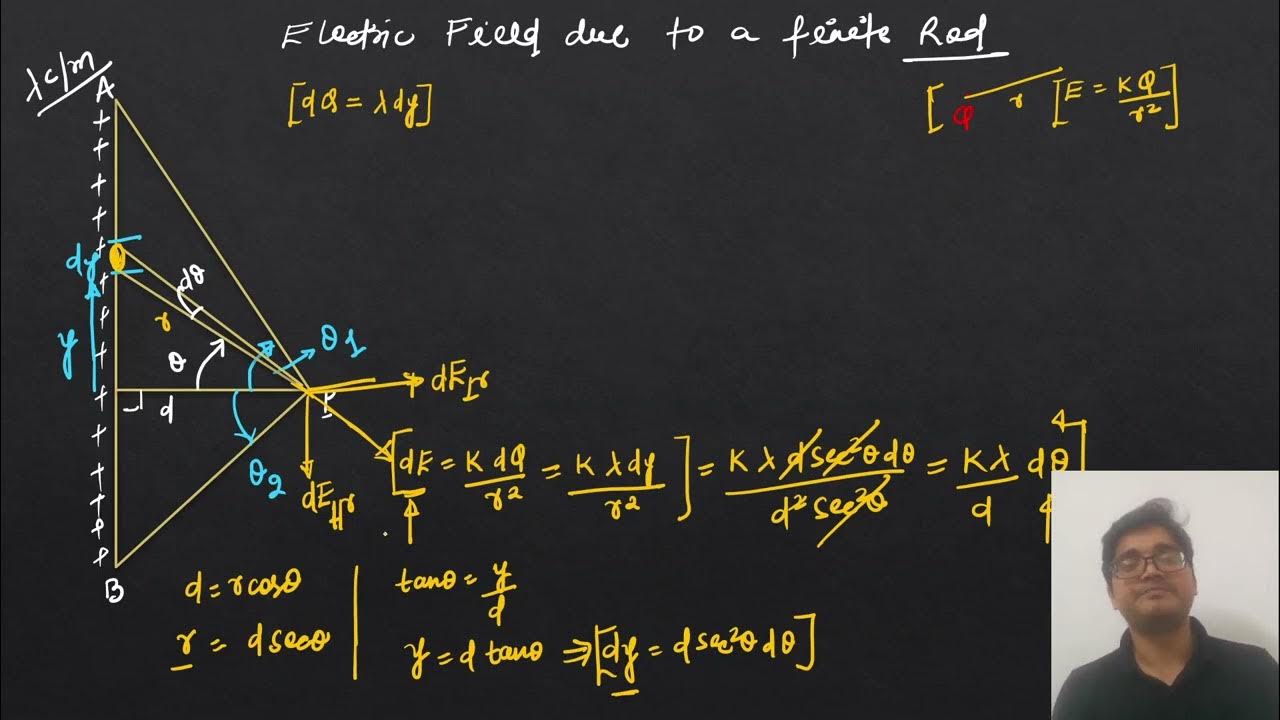 Electric Field due to a finite Rod
λ c/m
A
[dQ = λdy]
[ Q r [E = KQ/r²]
+
+
+
+
+
dy
+
dθ
+
r
y
θ
θ1
+
dE⊥r
+
d
P
+
θ2
dE||r
[dE = K dQ/r² = K λdy/r²] = K λ d sec²θ dθ/d² sec²θ = Kλ/d dθ]
+
+
+
+
B
d = r cosθ
tanθ = y/d
r = d secθ
y = d tanθ ⇒ [dy = d sec²θ dθ]